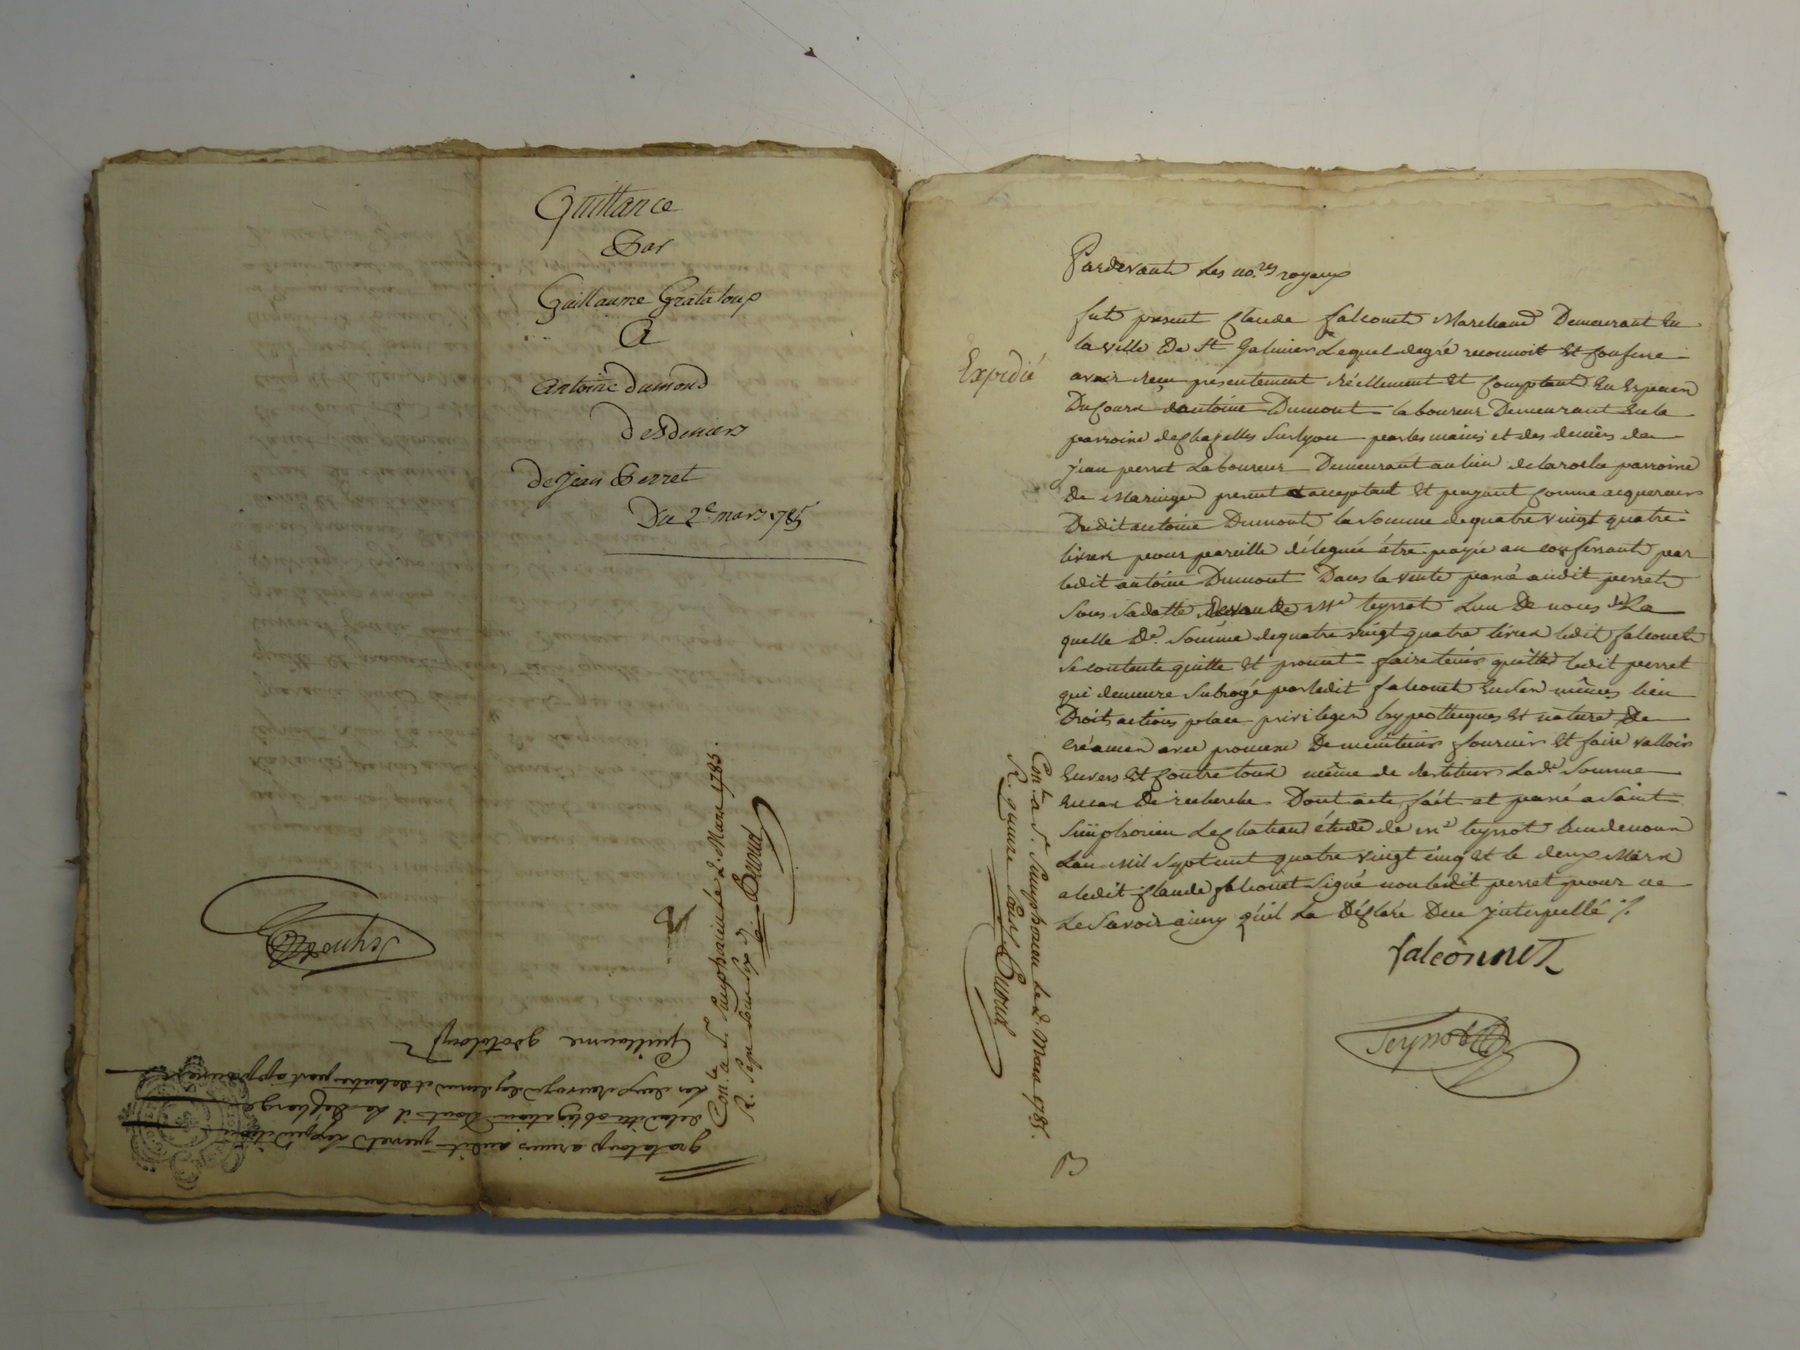 Quittance
Par
Guillaume Grataloup
A
Antoine dumond
des deniers
de Jean Perret
Du 2e mars 1785
Con.lé a St. Simphorien le 2. Mars 1785.
R. Sept sous six d.
Guillaume grotolou
grataloup a remis audit perret lexpedition
de laditte obligation dont il le décharge
Pardevant les no.res royaux
fut present Claude falconet Marchand Demeurant En
la ville De St Galmier Lequel degré reconnoit Et Confesse
avoir reçu présentement réellement Et Comptant En Espèces
Du Cours d'antoine Dumont laboureur Demeurant En la
parroisse de Chazelles Sur lyon par les mains et des deniers de
jean perret Laboureur Demeurant au lieu de la roche parroisse
de Maringes present et acceptant Et payant Comme acquereur
Dudit antoine Dumont la Somme de quatre vingt quatre
livres pour pareille déléguée être payée au confessant par
ledit antoine Dumont Dans la vente passé audit perret
Sous Sa datte devant Me teyssot Lun De nous La
quelle De. Somme de quatre vingt quatre livres ledit falconet
Se contente quitte Et promet faire tenir quitte ledit perret
qui demeure Subrogé par ledit falconet En Ses mêmes lieu
Droits actions place privileges hypotheques Et nature De
créances avec promesse De maintenir fournir Et faire valloir
Envers Et Contre tous même de restituer La de Somme
En cas De recherche. Dont acte fait et passé a Saint
Simphorien Le Chateau étude de Me teyssot lun de nous
Lan Mil Sept cent quatre vingt cinq et le deux Mars
a ledit Claude falconet Signé non ledit perret pour ne
Le Savoir ainsy qu'il La Déclaré De ce jnterpellé ./.
falconnet
Teyssot
Expedié
Con.lé a St. Simphorien le 2. Mars 1785.
R. quinze sous